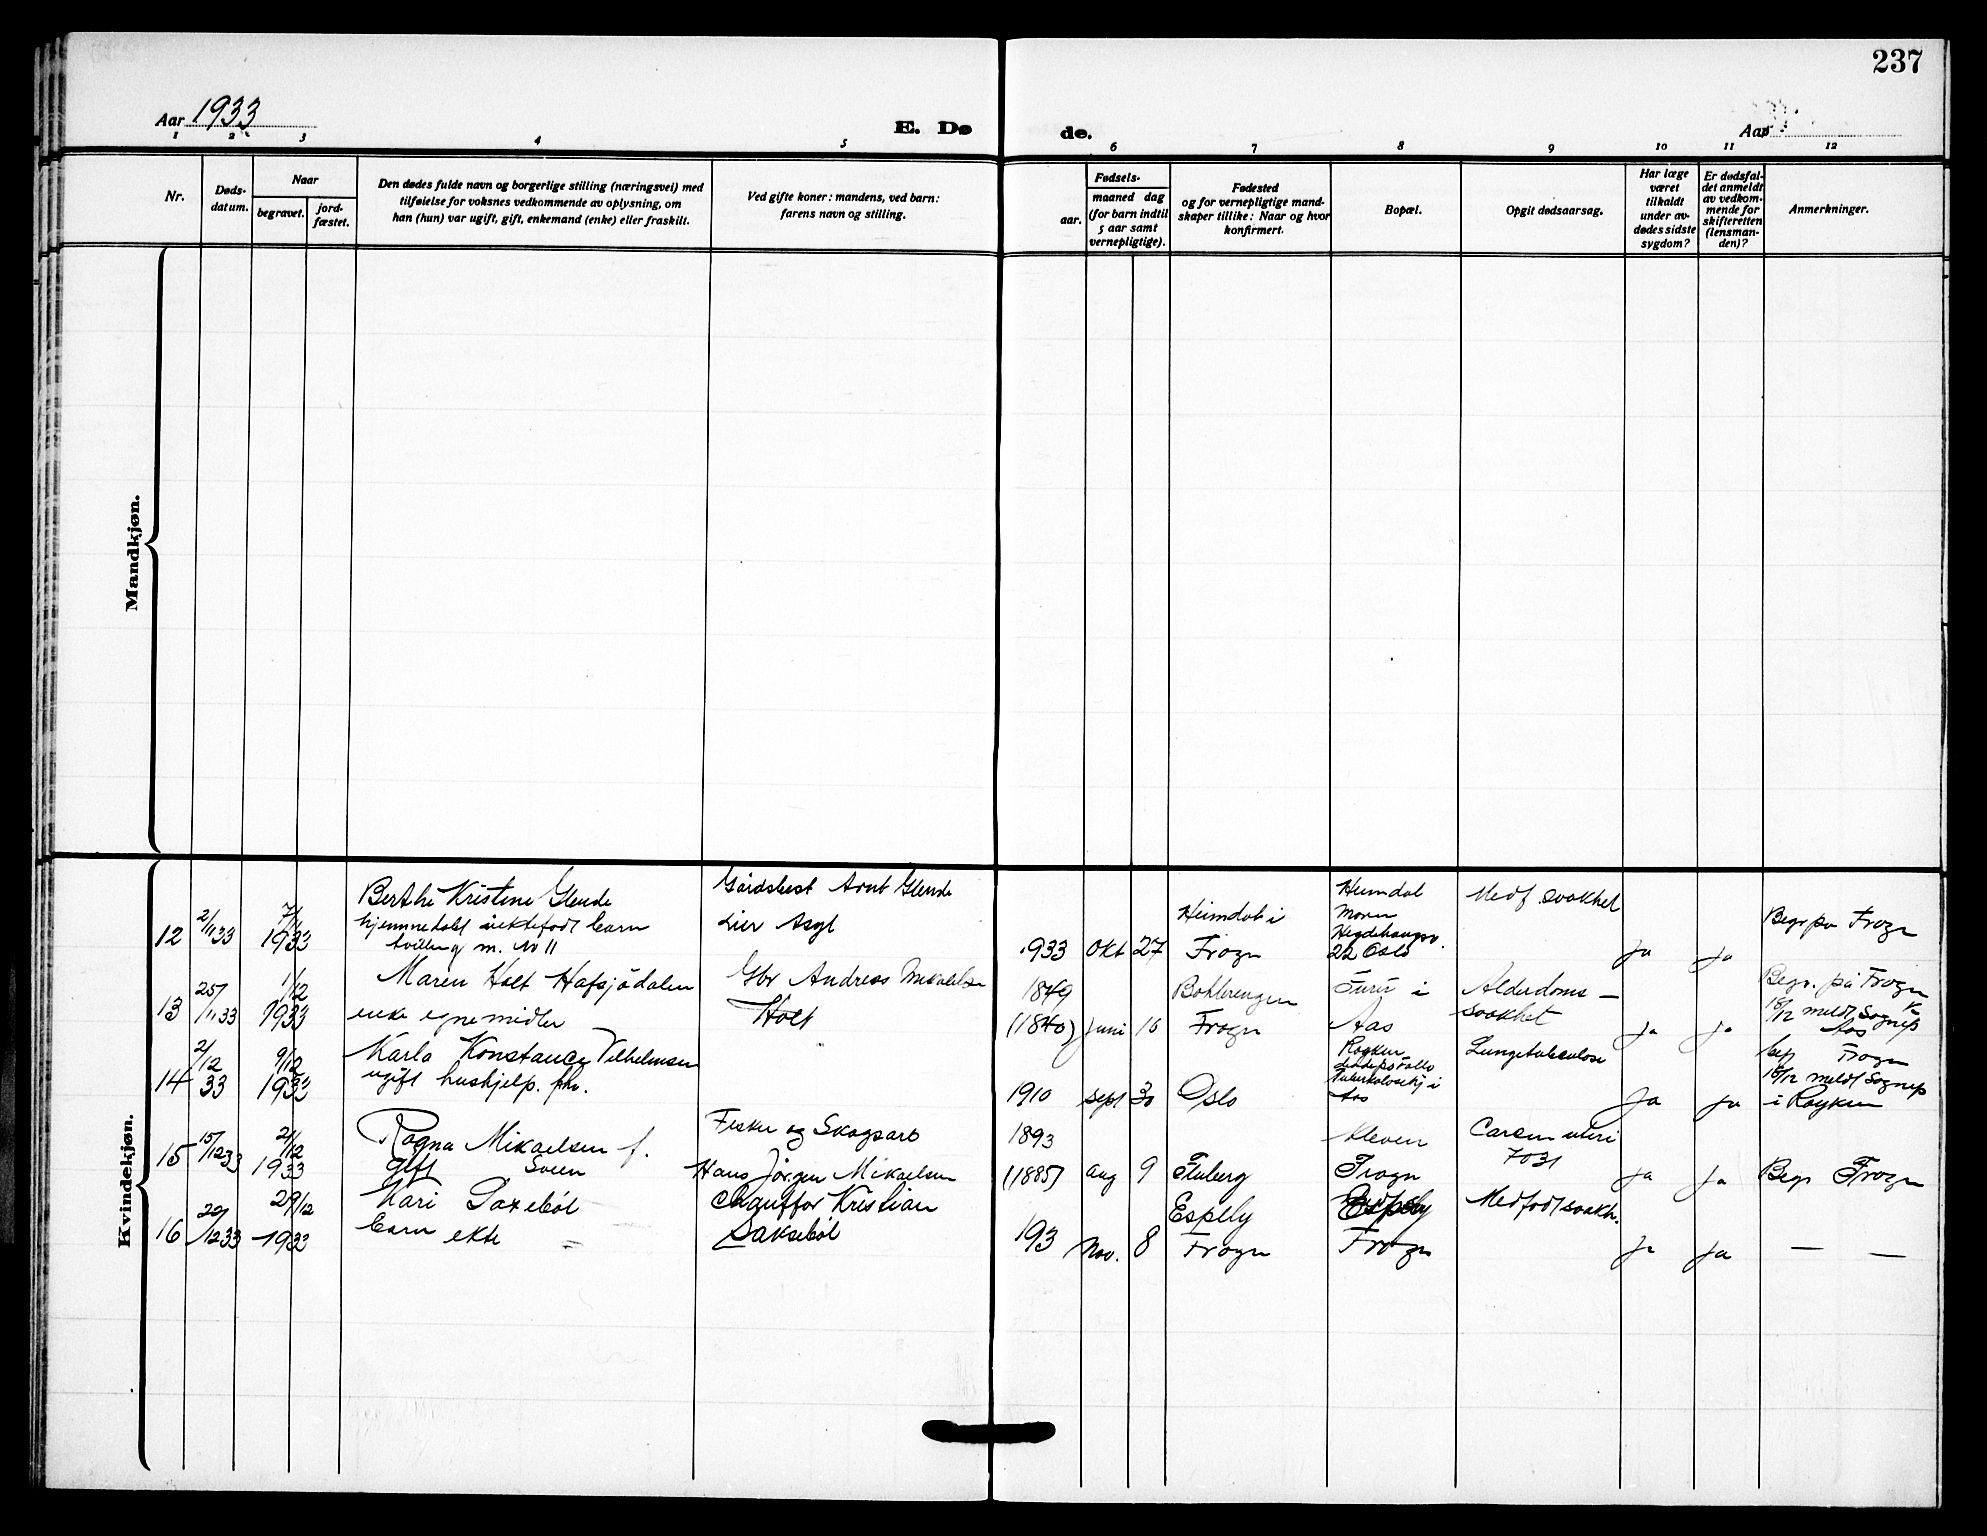 237
Aar 1933
E. Dø
de.
Aar
1 2 3 4 5 6 7 8 9 10 11 12
Nr.
Døds-
datum.
Naar
begravet.
jord-
fæstet.
Den dødes fulde navn og borgerlige stilling (næringsvei) med
tilføielse for voksnes vedkommende av oplysning, om
han (hun) var ugift, gift, enkemand (enke) eller fraskilt.
Ved gifte koner: mandens, ved barn:
farens navn og stilling.
Fødsels-
aar.
maaned dag
(for barn indtil
5 aar samt
vernepligtige).
Fødested
og for vernepligtige mand-
skaper tillike: Naar og hvor
konfirmert.
Bopæl.
Opgit dødsaarsag.
Har læge
været
tilkaldt
under av-
dødes sidste
sygdom?
Er dødsfal-
det anmeldt
av vedkom-
mende for
skifteretten
(lensman-
den)?
Anmerkninger.
Mandkjøn.
Kvindekjøn.
12
2/11 33
7/11
1933
Berthe Kristine Glende
hjemmedøbt uektefødt barn
tvilling m. No 11
Gårdsbest Arnt Glende
Lier Asyl
1933 Okt 27
Heimdal i
Frogn
Heimdal
Moren
22 Oslo
Medf svakhet
Ja
Ja
Begr på Frogn
13
25/11 33
1/12
1933
Maren Holt Hafsjødalen
enke egne midler
Gbr Andreas Mikaelsen
Holt
1849
(1840) Juni 16
Frogn
Furu i
Aas
Alderdoms-
svakhet
Ja
Ja
Begr. på Frogn
18/12 meldt Sognep
Aas
14
2/12
33
9/12
1933
Karla Konstance Vilhelmsen
ugift hushjelp.
1910 Sept 30
Oslo
Røyken
Tuberkolosehj i
Aas
Lungetuberkulose
Ja
Ja
beg Frogn
18/12 meldt Sognep
i Røyken
15
15/12 33
21/12
1933
Ragna Mikaelsen f.
gift Sveen
Fisker og Skogsarb
Hans Jørgen Mikaelsen
1893
(1885) Aug 9
Fluberg
Kleven
Frogn
Cancer uteri
7031
Ja
Ja
Begr Frogn
16
22/12 33
29/12
1933
Kari Saxebøl
barn ekte
Chauffør Kristian
Saksebøl
193 Nov. 8
Espely
Frogn
Espely
Frogn
Medfødt svakh.
Ja
Ja
— —